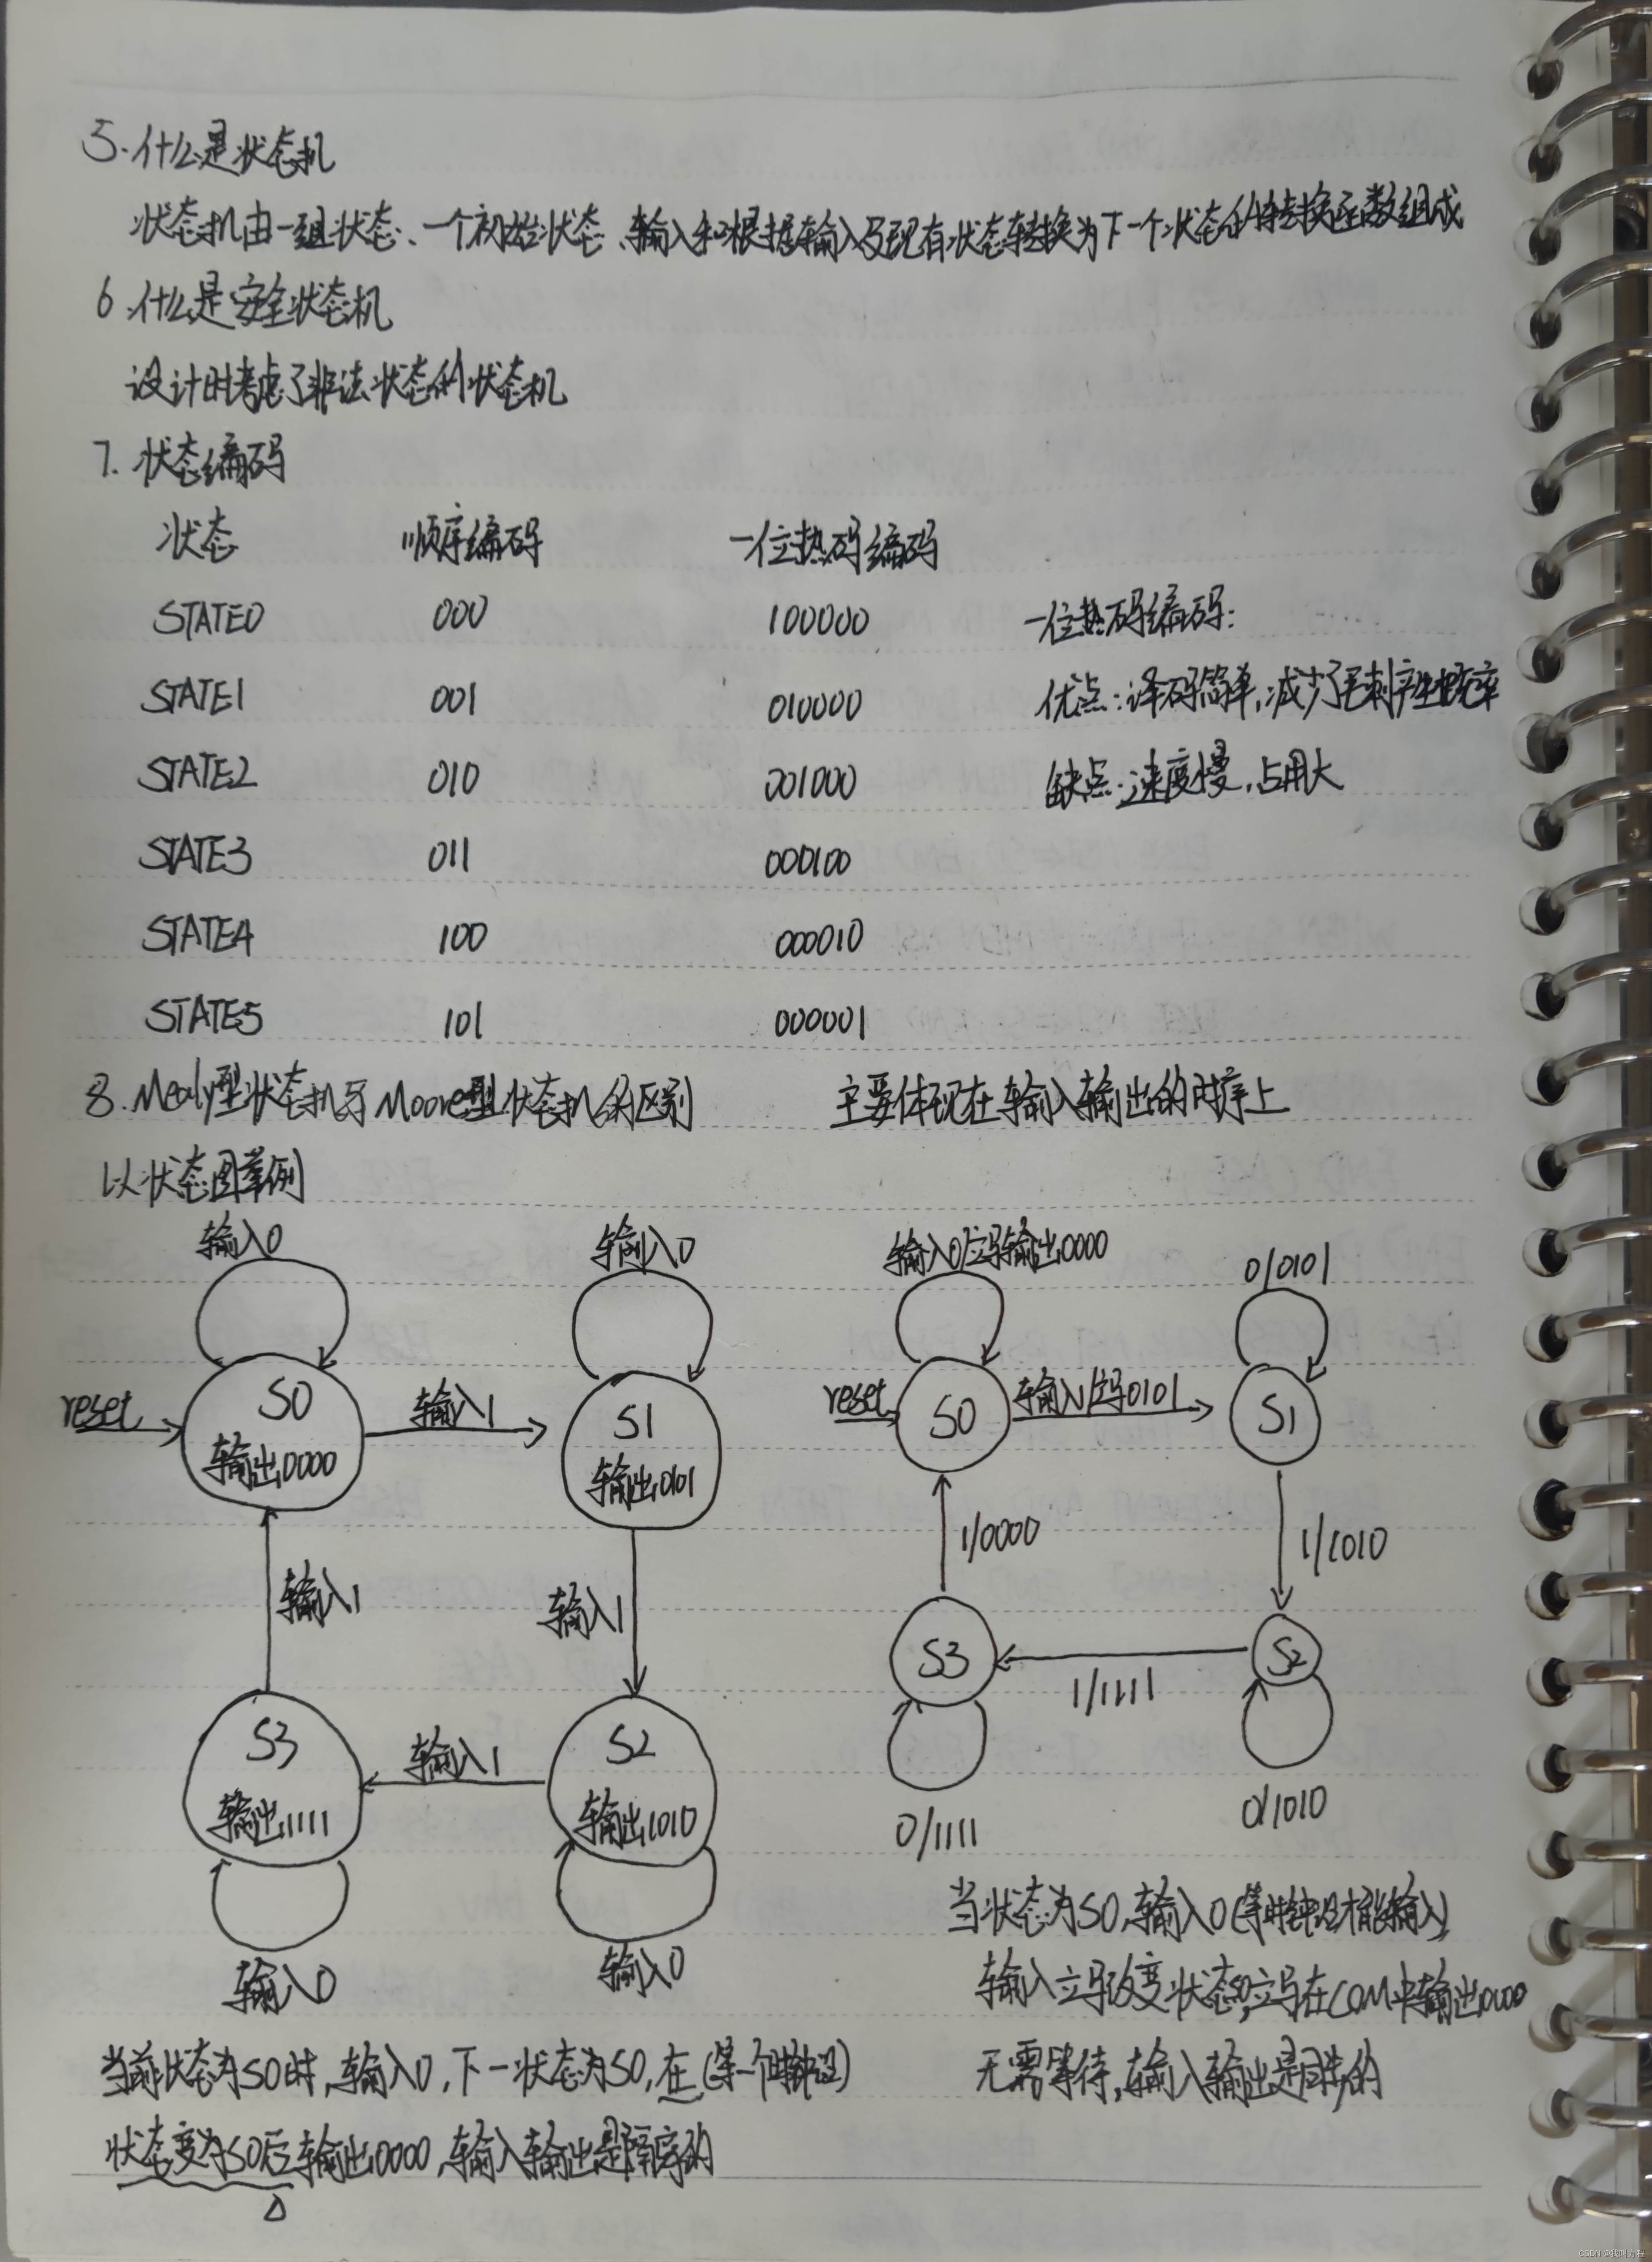 5.什么是状态机
状态机由一组状态、一个初始状态、输入和根据输入及现有状态转换为下一个状态的转换函数组成
6.什么是安全状态机
设计时考虑了非法状态的状态机
7.状态编码
状态 顺序编码 一位热码编码
STATE0 000 100000 一位热码编码:
STATE1 001 010000 优点:译码简单,减少了毛刺产生概率
STATE2 010 001000 缺点:速度慢,占用大
STATE3 011 000100
STATE4 100 000010
STATE5 101 000001
8.Mealy型状态机与Moore型状态机的区别 主要体现在输入输出的时序上
以状态图举例
输入0 输入0 输入0/立马输出0000 0/0101
reset S0 输入1 S1 reset S0 输入1/立马0101 S1
输出0000 输出0101
输入1 输入1 1/0000 1/1010
S3 S2
1/1111
S3 输入1 S2
输出1111 输出1010
0/1111 0/1010
输入0 输入0
当状态为S0,输入0(等时钟沿才能输入)
输入立马改变状态S0,立马在COM中输出0000
无需等待,输入输出是同步的
当前状态为S0时,输入0,下一状态为S0,在(等一个时钟沿)
状态变为S0后输出0000,输入输出是隔序的